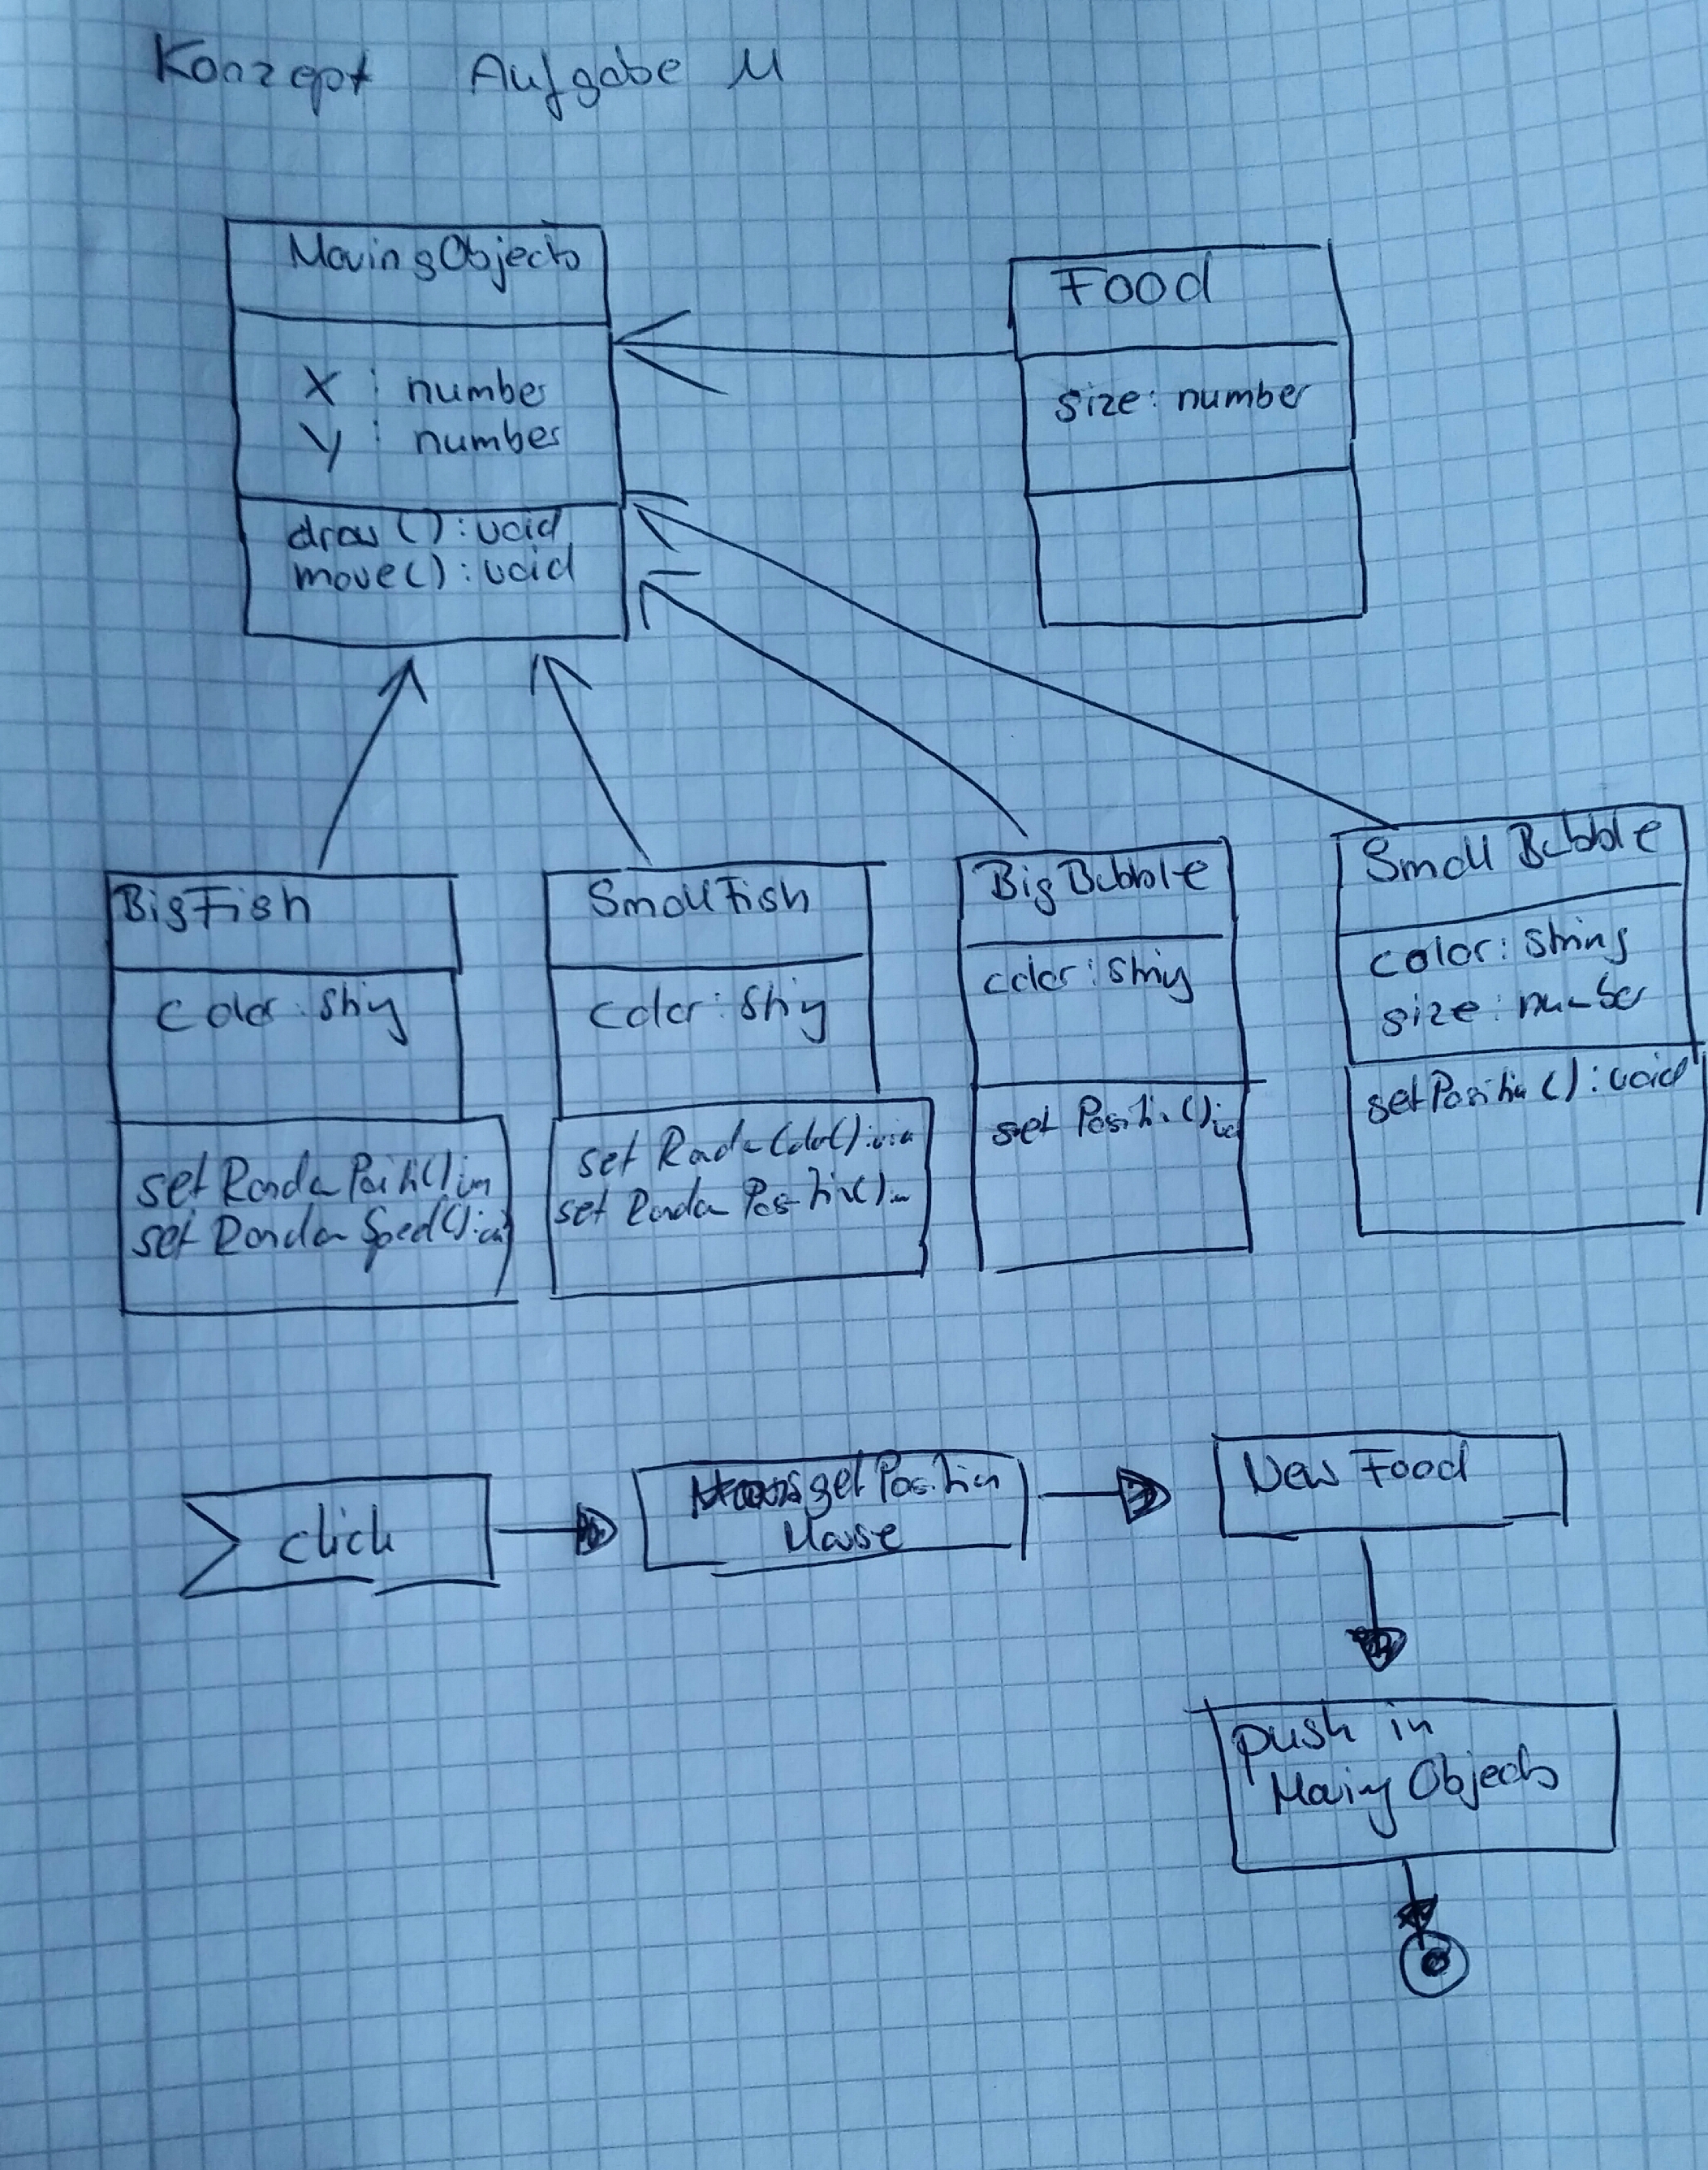 Konzept Aufgabe 11
MovingObjects
X : number
Y : number
draw () : void
move() : void
Food
size: number
BigFish
color: string
set Random Position()
set Random Speed()
SmallFish
color: string
set Random Color()
set Random Position()
BigBubble
color: string
set Position()
Small Bubble
color: string
size: number
setPosition () : void
click
get Position
Mouse
New Food
push in
Moving Objects